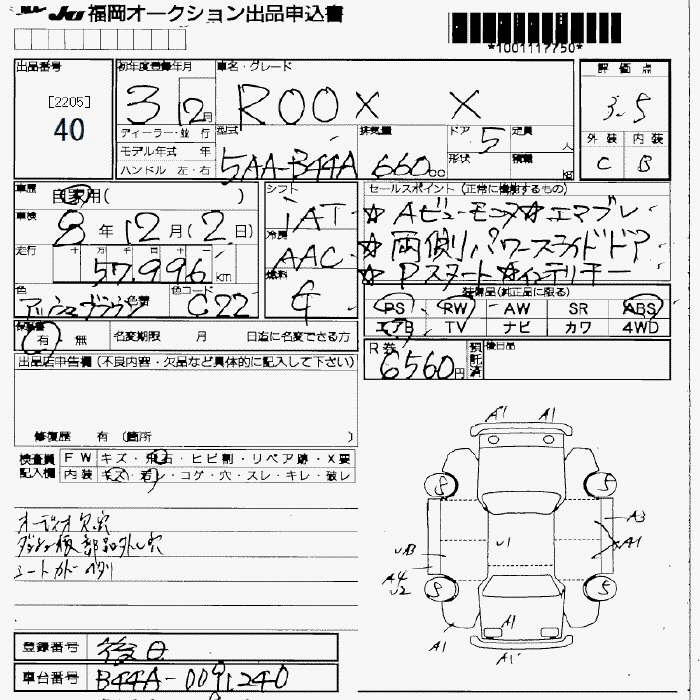 JU 福岡オークション出品申込書
*1001117750*
出品番号
[2205]
40
初年度登録年月
3 12月
車名・グレード
ROOX X
評価点
3.5
外装 内装
C B
ディーラー・並行
モデル年式 年
ハンドル 左・右
型式
5AA-B44A
排気量
660cc
ドア
5
形状
定員 人
積載 kg
車歴
自家用( )
車検
8年12月(2日)
走行
十 万 千 百 十 一
57,996km
色
アッシュブラウン
色替
色コード
C22
シフト
IAT
冷房
AAC
燃料
G
セールスポイント(正常に機能するもの)
☆Aビューモニタ☆エマブレ
☆両側パワースライドドア
☆Pスタート☆インテリキー
装備品(純正品に限る)
PS RW AW SR ABS
エアB TV ナビ カワ 4WD
保証書
有・無
名変期限 月 日迄に名変できる方
R券
6560円
預託済
後日品
出品店申告欄(不良内容・欠品など具体的に記入して下さい)
修復歴 有(箇所 )
検査員記入欄
FW キズ・飛石・ヒビ割・リペア跡・X要
内装 キズ・汚レ・コゲ・穴・スレ・キレ・破レ
オーディオ欠品
シートカバー
A1 A1
8 5
A3
U1
A1
UB3
A4
U2
8 5
A1
A1
A1
登録番号 後日
車台番号 B44A-0091240